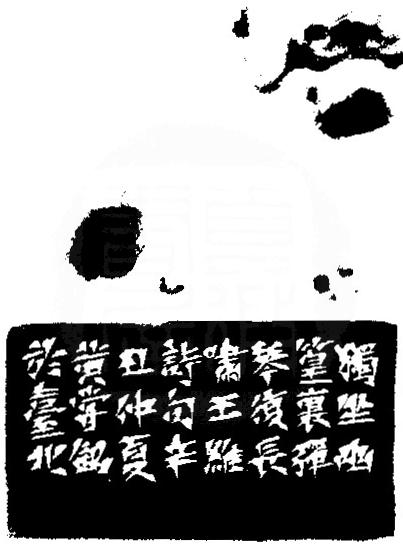 獨坐幽
篁裏彈
琴復長
嘯王維
詩句辛
丑仲夏
黃嘗銘
於臺北